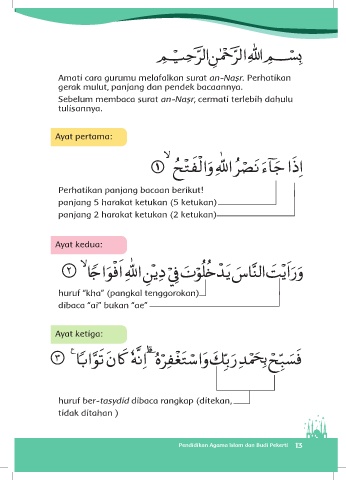 بِسْــــمِ اللّٰهِ الرَّحْمٰنِ الرَّحِـــيْـــمِ
Amati cara gurumu melafalkan surat an-Naṣr. Perhatikan
gerak mulut, panjang dan pendek bacaannya.
Sebelum membaca surat an-Naṣr, cermati terlebih dahulu
tulisannya.
Ayat pertama:
اِذَا جَاۤءَ نَصْرُ اللّٰهِ وَالْفَتْحُۙ ١
Perhatikan panjang bacaan berikut!
panjang 5 harakat ketukan (5 ketukan)
panjang 2 harakat ketukan (2 ketukan)
Ayat kedua:
وَرَاَيْتَ النَّاسَ يَدْخُلُوْنَ فِيْ دِيْنِ اللّٰهِ اَفْوَاجًاۙ ٢
huruf "kha" (pangkal tenggorokan)
dibaca "ai" bukan "ae"
Ayat ketiga:
فَسَبِّحْ بِحَمْدِ رَبِّكَ وَاسْتَغْفِرْهُۗ اِنَّهٗ كَانَ تَوَّابًا ࣖ ٣
huruf ber-tasydid dibaca rangkap (ditekan,
tidak ditahan )
Pendidikan Agama Islam dan Budi Pekerti 15